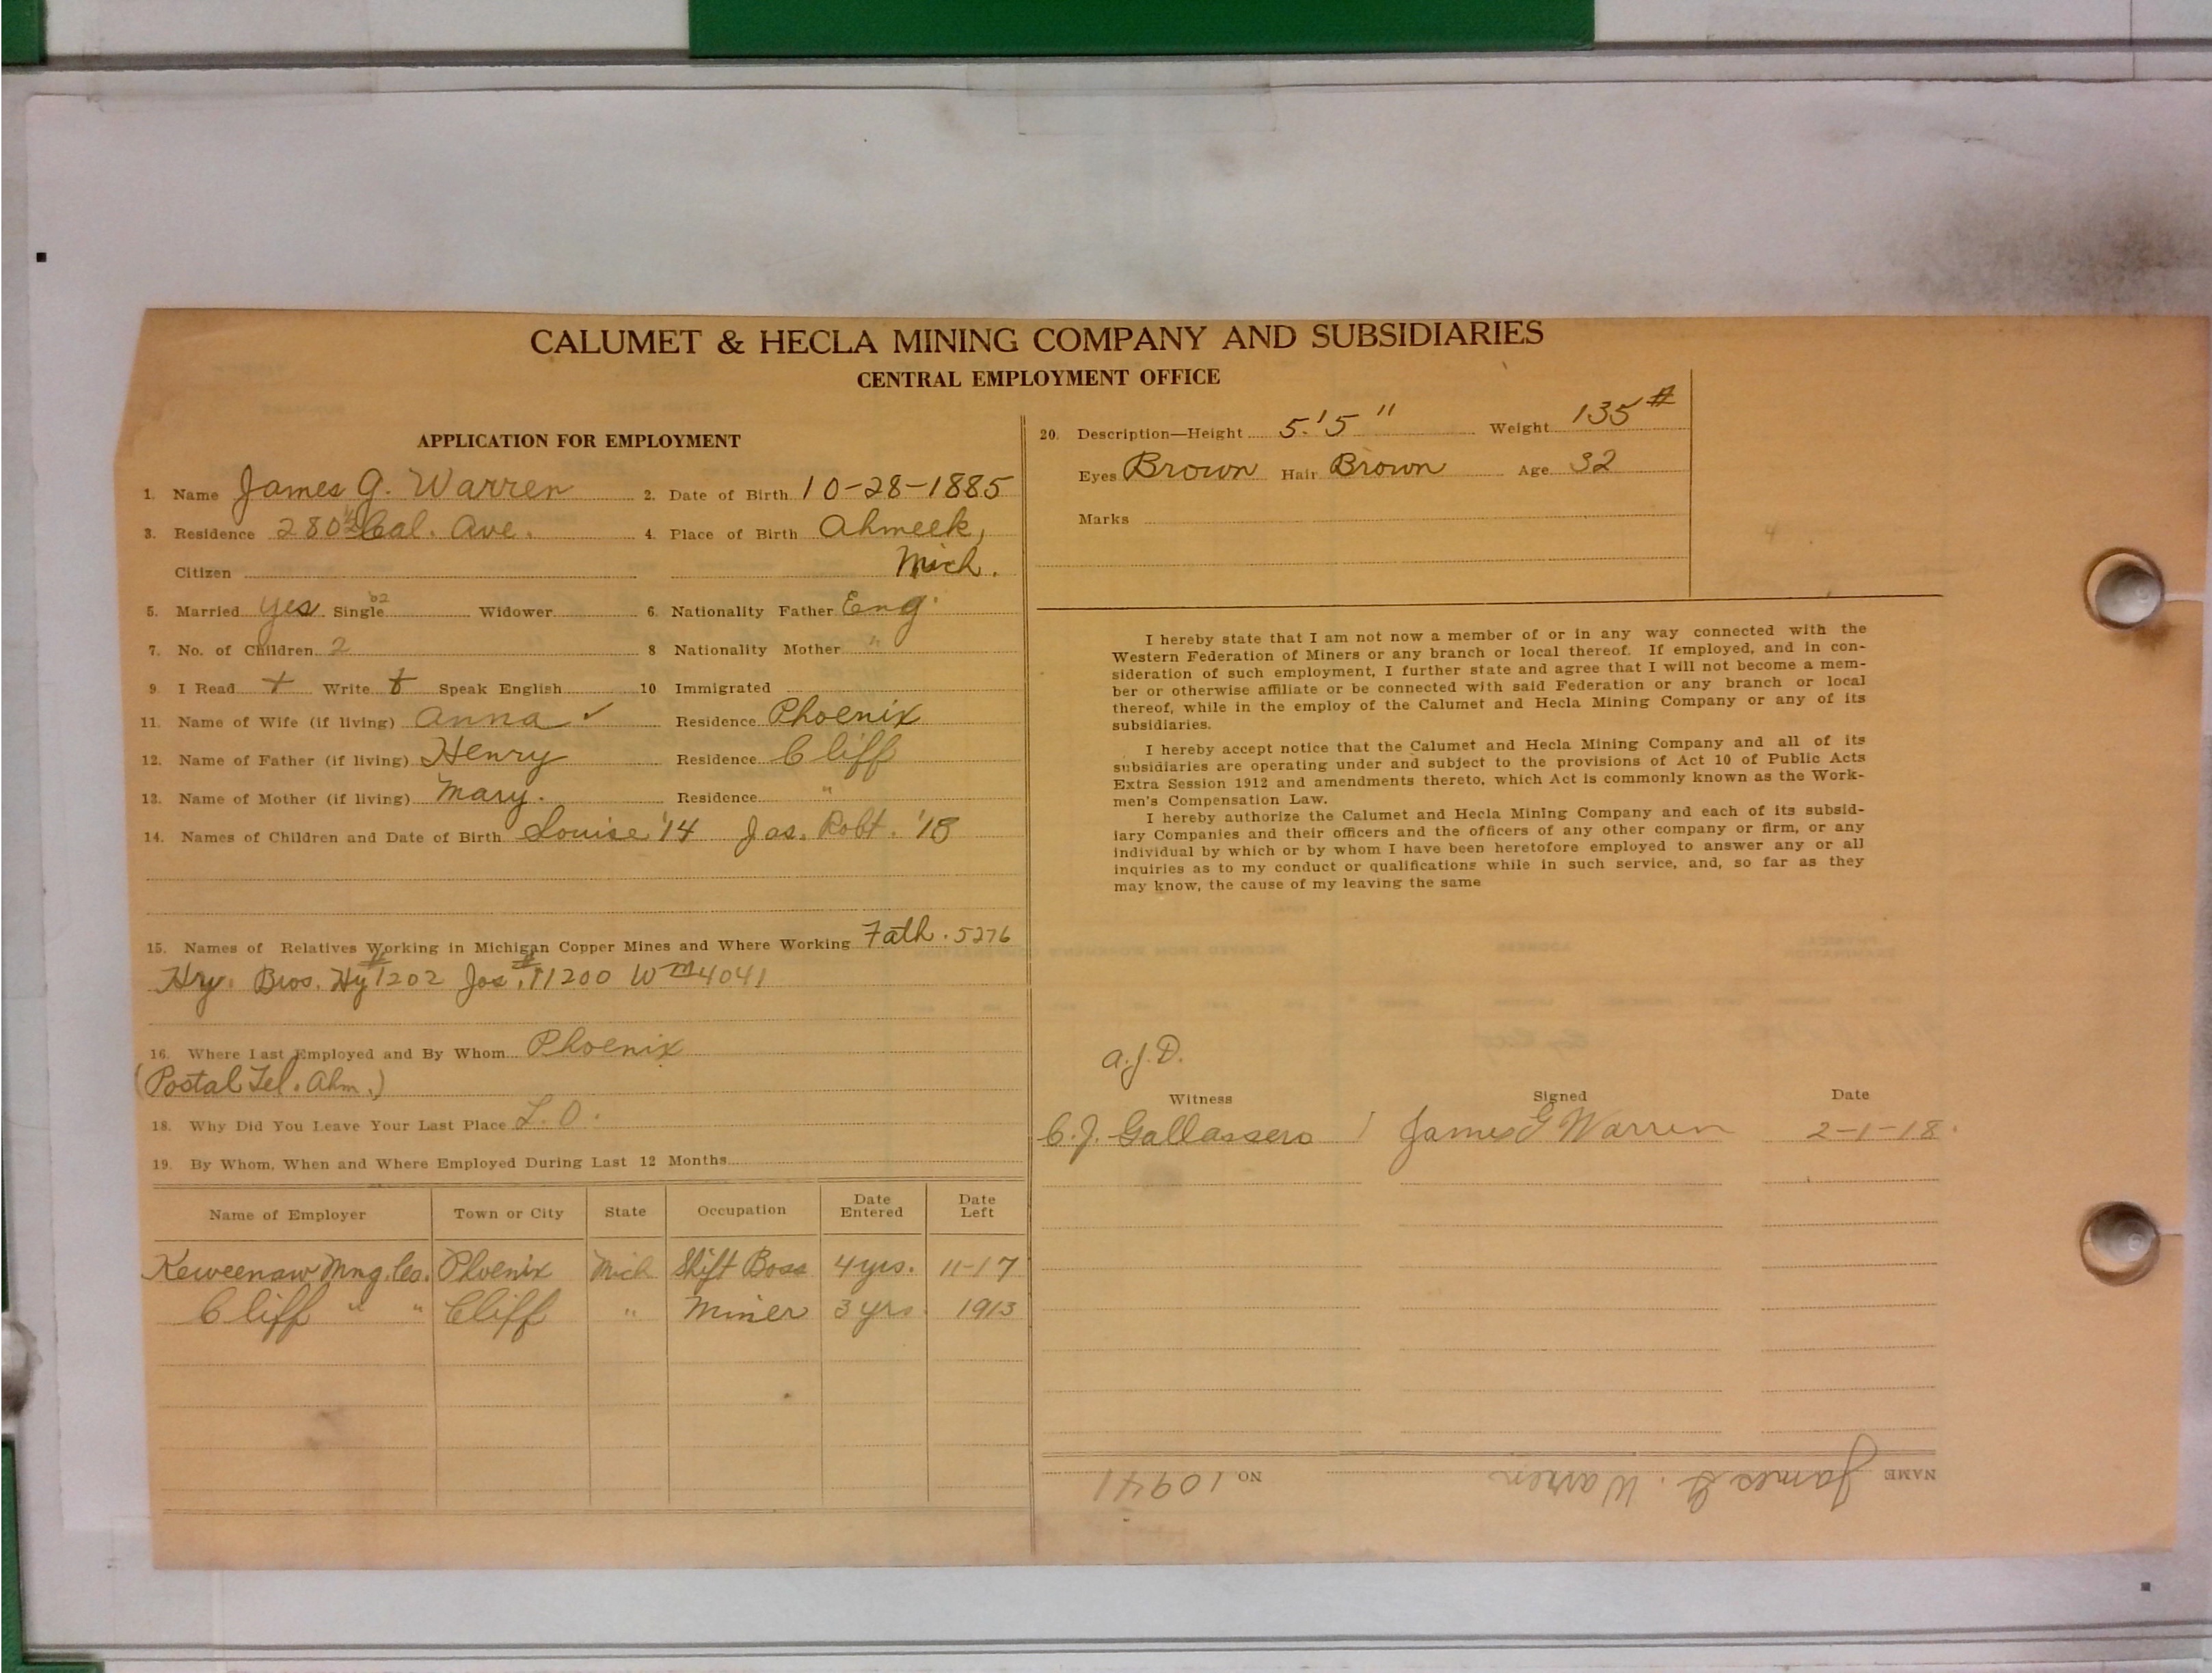 CALUMET & HECLA MINING COMPANY AND SUBSIDIARIES
CENTRAL EMPLOYMENT OFFICE
APPLICATION FOR EMPLOYMENT
1. Name James G. Warren 2. Date of Birth 10-28-1885
3. Residence 280½ Cal. Ave. 4. Place of Birth Ahmeek,
Citizen Mich.
5. Married yes Single Widower 6. Nationality Father Eng.
7. No. of Children 2 8 Nationality Mother "
9. I Read + Write + Speak English 10 Immigrated
11. Name of Wife (if living) Anna ✓ Residence Phoenix
12. Name of Father (if living) Henry Residence Cliff
13. Name of Mother (if living) Mary. Residence "
14. Names of Children and Date of Birth Louise '14 Jas. Robt. '18
15. Names of Relatives Working in Michigan Copper Mines and Where Working Fath. 5276
Hry. Bros. Hy #1202 Jos. #11200 Wm 4041
16. Where Last Employed and By Whom Phoenix
(Postal Tel. Ahm.)
18. Why Did You Leave Your Last Place L.O.
19. By Whom, When and Where Employed During Last 12 Months
Name of Employer Town or City State Occupation Date Entered Date Left
Keweenaw Mng. Co. Phoenix Mich Shift Boss 4 yrs. 11-17
Cliff " " Cliff " Miner 3 yrs. 1913
20. Description—Height 5.'5" Weight 135#
Eyes Brown Hair Brown Age 32
Marks
I hereby state that I am not now a member of or in any way connected with the
Western Federation of Miners or any branch or local thereof. If employed, and in con-
sideration of such employment, I further state and agree that I will not become a mem-
ber or otherwise affiliate or be connected with said Federation or any branch or local
thereof, while in the employ of the Calumet and Hecla Mining Company or any of its
subsidiaries.
I hereby accept notice that the Calumet and Hecla Mining Company and all of its
subsidiaries are operating under and subject to the provisions of Act 10 of Public Acts
Extra Session 1912 and amendments thereto, which Act is commonly known as the Work-
men's Compensation Law.
I hereby authorize the Calumet and Hecla Mining Company and each of its subsid-
iary Companies and their officers and the officers of any other company or firm, or any
individual by which or by whom I have been heretofore employed to answer any or all
inquiries as to my conduct or qualifications while in such service, and, so far as they
may know, the cause of my leaving the same
A.J.D.
Witness Signed Date
C.J. Gallassero James G Warren 2-1-18.
NAME James G. Warren NO 10941